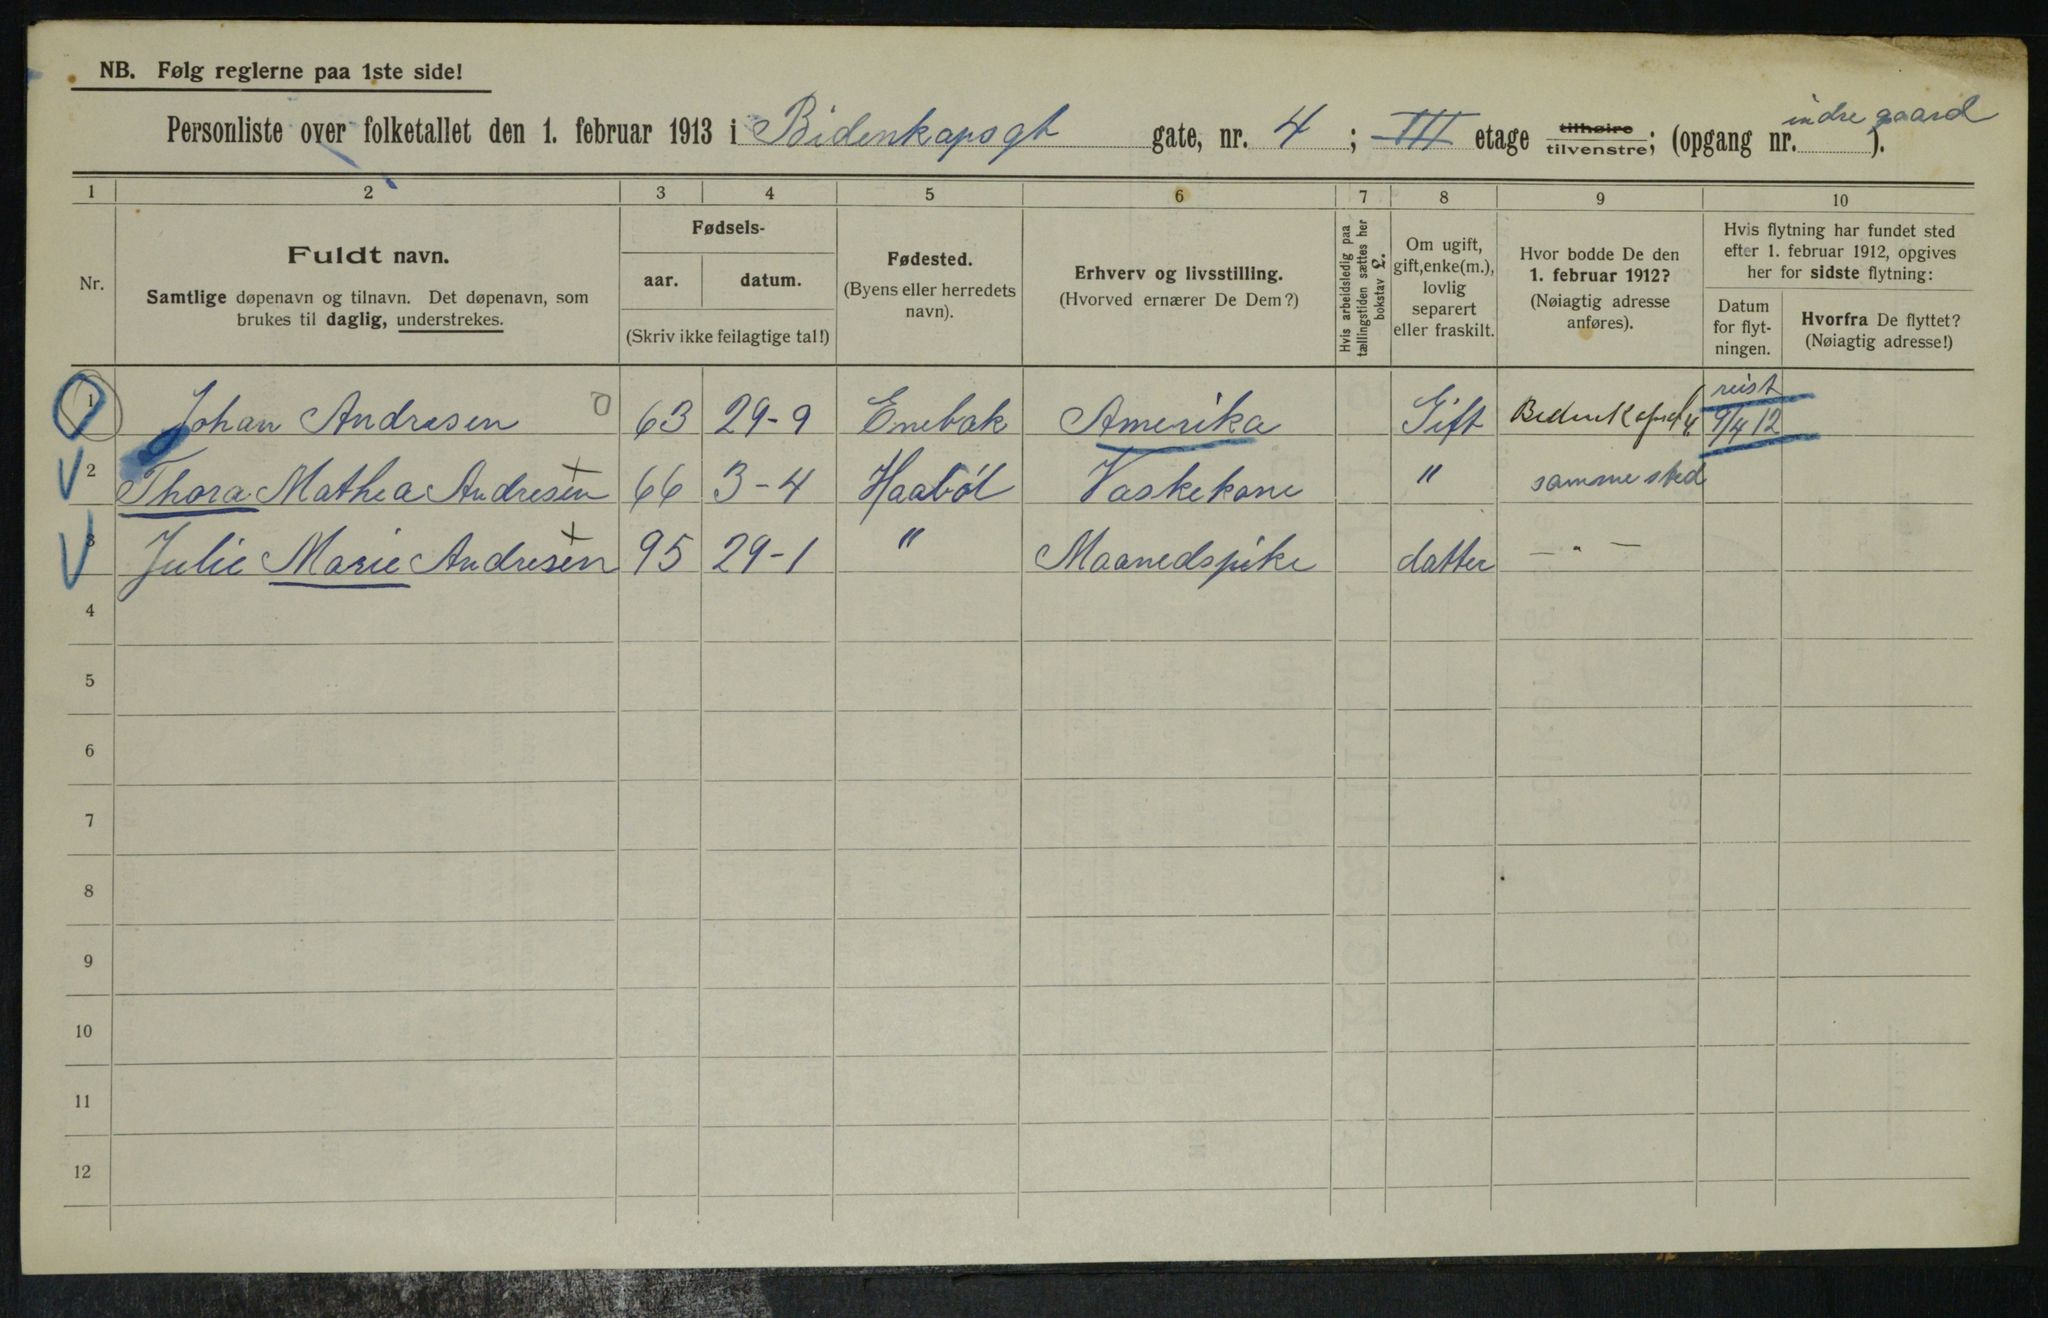 NB. Følg reglerne paa 1ste side!
indre gaard
Personliste over folketallet den 1. februar 1913 i Bidenkapsgt gate, nr. 4 ; III etage tilhøire tilvenstre; (opgang nr. ).
1 2 3 4 5 6 7 8 9 10
Nr.
Fuldt navn.
Samtlige døpenavn og tilnavn. Det døpenavn, som
brukes til daglig, understrekes.
Fødsels-
aar. datum.
(Skriv ikke feilagtige tal!)
Fødested.
(Byens eller herredets
navn).
Erhverv og livsstilling.
(Hvorved ernærer De Dem?)
Hvis arbeidsledig paa
tællingstiden sættes her
bokstav L.
Om ugift,
gift, enke(m.),
lovlig
separert
eller fraskilt.
Hvor bodde De den
1. februar 1912?
(Nøiagtig adresse
anføres).
Hvis flytning har fundet sted
efter 1. februar 1912, opgives
her for sidste flytning:
Datum
for flyt-
ningen.
Hvorfra De flyttet?
(Nøiagtig adresse!)
1 Johan Andresen 63 29-9 Enebak Amerika Gift reist 9/4 12
2 Thora Mathea Andresen 66 3-4 Haabøl Vaskekone " samme sted
3 Julie Marie Andresen 95 29-1 " Maanedspike datter — " —
4
5
6
7
8
9
10
11
12